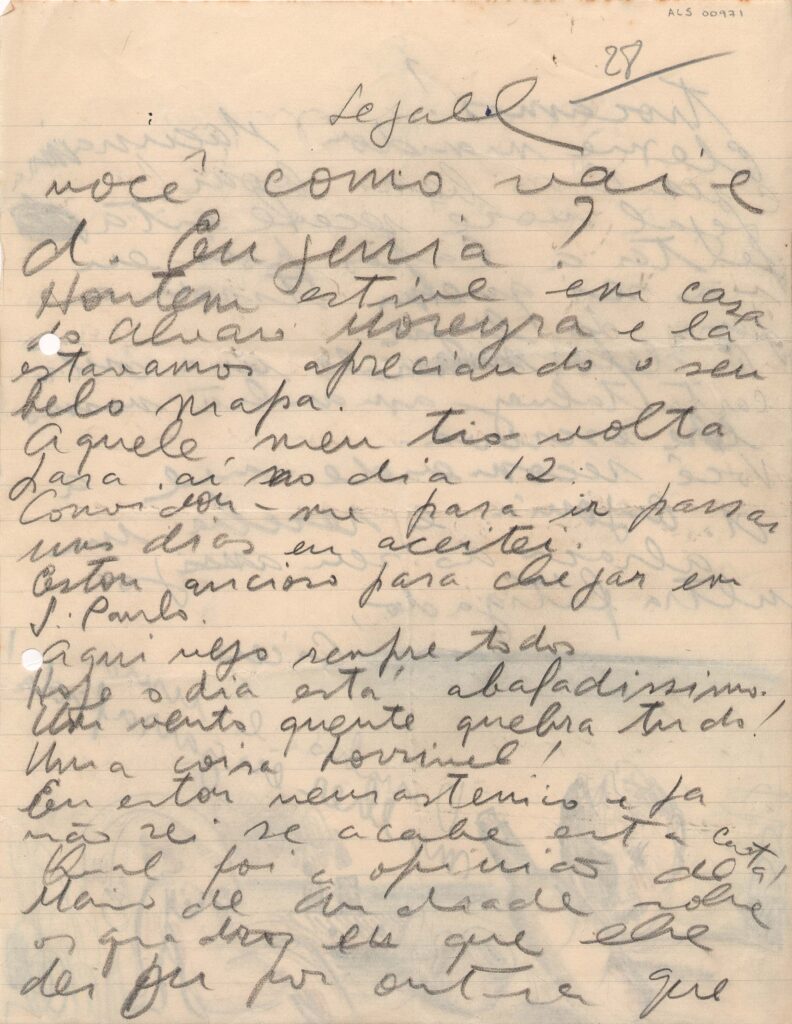 ALS 00971
28
Segall
você como vai e
d. Eugenia?
Hontem estive em casa
do Alvaro Moreyra e lá
estavamos apreciando o seu
belo mapa.
Aquele meu tio volta
para aí no dia 12.
Convidou-me para ir passar
uns dias eu aceitei.
Estou ancioso para chegar em
S. Paulo.
Aqui vejo sempre todos
Hoje o dia está abafadissimo.
Um vento quente quebra tudo!
Uma coisa horrivel!
Eu estou neurastenico e ja
não sei se acabe esta carta!
Qual foi a opinião de
Mario de Andrade sobre
os quadros que elle
deu por outra que